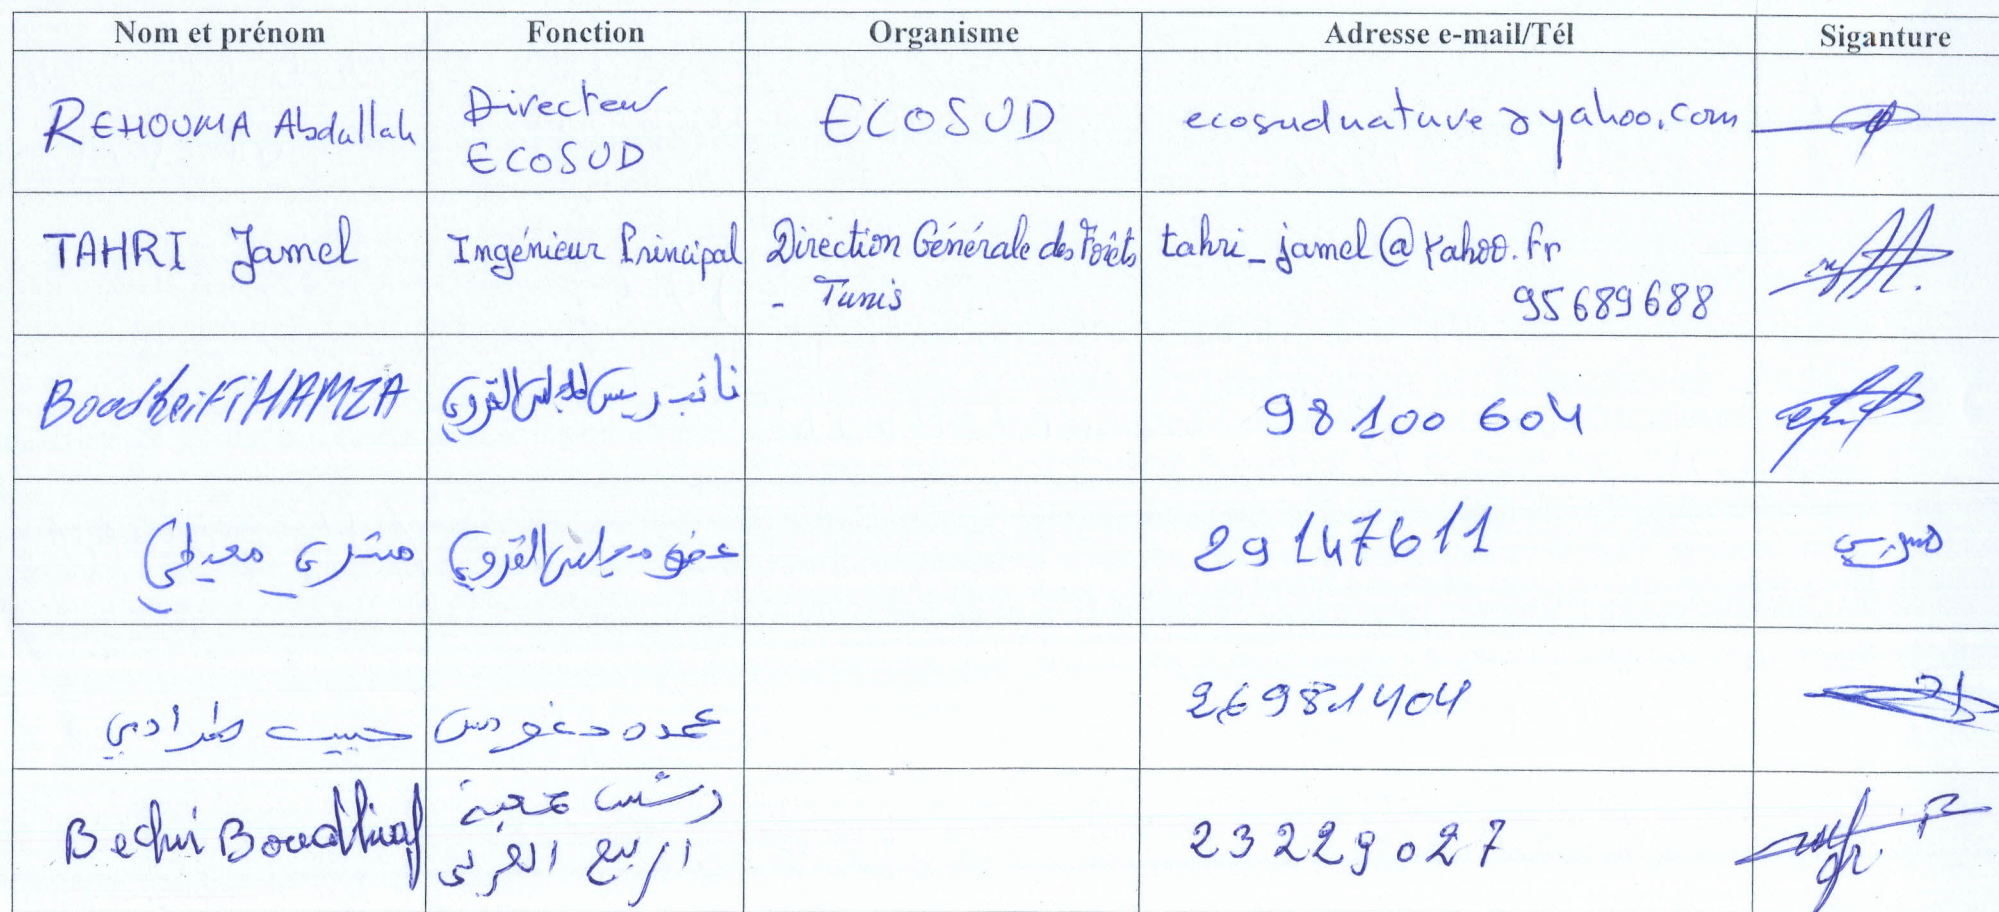 Nom et prénom Fonction Organisme Adresse e-mail/Tél Siganture
REHOUMA Abdallah Directeur ECOSUD ecosudnature@yahoo.com
ECOSUD
TAHRI Jamel Ingénieur Principal Direction Générale des Forêts tahri_jamel@yahoo.fr
- Tunis 95689688
HAMZA نائب رئيس المجلس القروي 98 100 604
معيطي عضو مجلس القروي 29147611
حبيب طرادي عمدة دغومس 26981404
Bechir رئيس جمعية 23 229 027